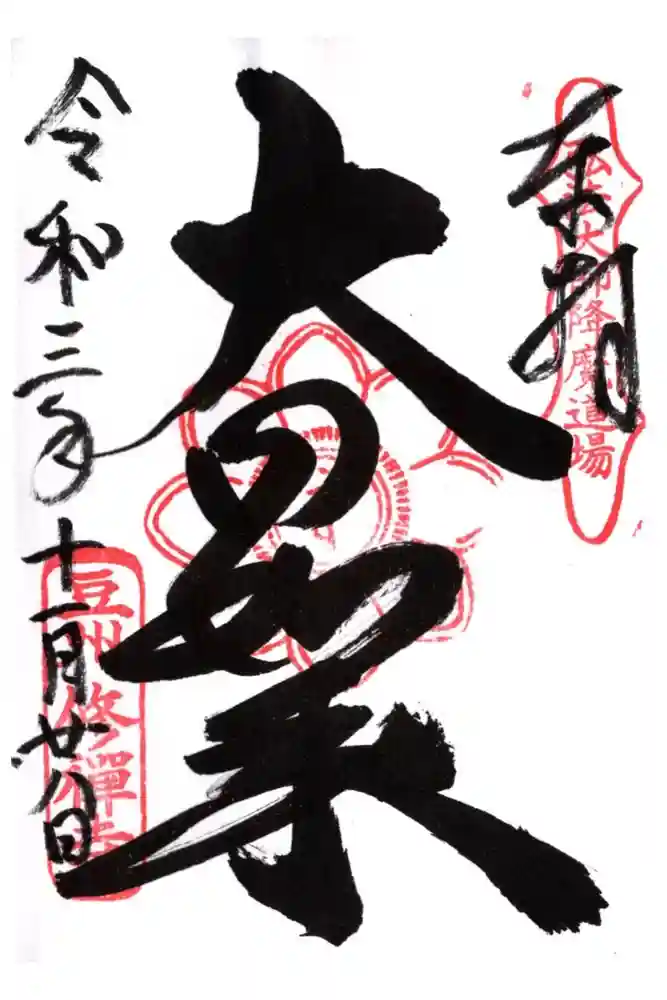 奉拝
弘法大師降魔道場
大日如来
令和三年十一月廿八日
豆州修禅寺